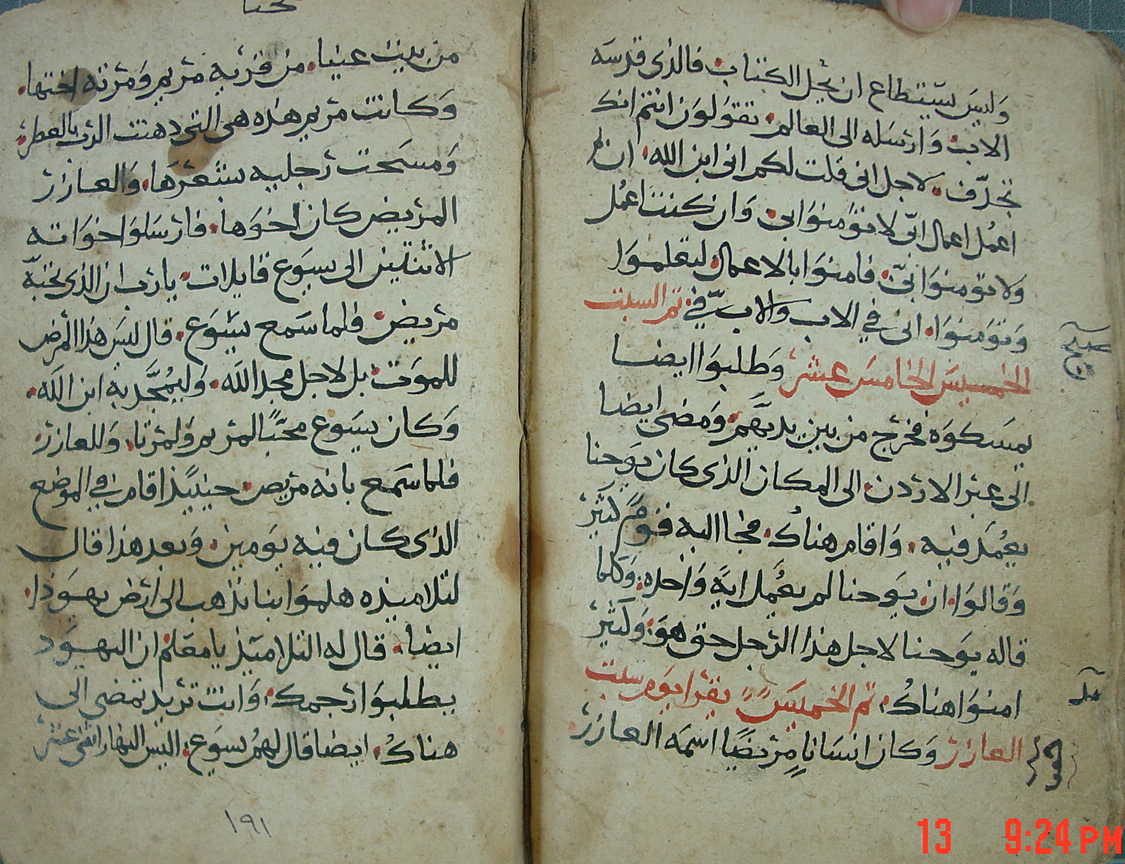 وَليسَ يسّتطاع ان يحل الكتاب. فالذى قدسَه
الاب وَارسَله الى العالم. تقوَلوَن انتم انك
تجدّف. لاجل انى قلت لكم انى ابن الله. ان لم
اعمُل اعمال ابّى لا توٓمنوَا بى. وَان كنت اعمُل
وَلا توَمنوَا بىّ. فامنوَا بالاعمال لتعلموَا
وَتوَمنوَا. انى في الاب وَالاب فيّ. تم السبت
الخميسَ الخامسَ عشر وَطلبوَا ايضا
يمسَكوَه فخرج من بين يديهَم. وَمضى ايضا
الى عبر الاردن. الى المكان الذى كان يوَحنا
يعُمّد فيه. وَاقام هناك. فجا اليه قوَم كثير
وَقالوَا. ان يوَحنا لم يعُمل ايه وَاحده. وَكلما
قاله يوَحنا لاجل هذا الرجل حق هوَ. وَكثير
امنوَا هناك. تم الخميسَ يقرا يوَم سبت
العازر وَكان انسانا مريضًا اسمَه العازر.
تحنا
من بيت عنيا. من قريه مريم وَمرته اختها.
وَكانت مريم هذه هى التى دهنت الرب بالعطر.
وَمسَحت رجليه بشعرهَا. وَالعازر
المريض كان اخوَها. فارسَلوَا اخوَاته
الاثنتين الى يسوَع قايلات. يارب ان الذى تحبّه
مريض. فلما سَمع يسَوَع. قال ليسَ هذا المرض
للموَت. بل لاجل مجد الله. وَليمجَّد به ابن الله.
وَكان يسَوَع محبًا لمريم وَلمرتا. وَللعازر.
فلما سَمع بانه مريض. حينيذ اقام في الموَضع
الذى كان فيه يوَمين. وَبعد هذا قال
لتلاميذه هلموَا بنا نذهب الى ارض يهوَذا.
ايضا. قال له التلاميَذ يا معَلم ان اليهوَد
يطلبوا رجمك. وَانت تريد تمضى الى
هناك. ايضا قال لهم يسوَع. اليس النهار اثنى عشر
١٩١
13 9:24 PM